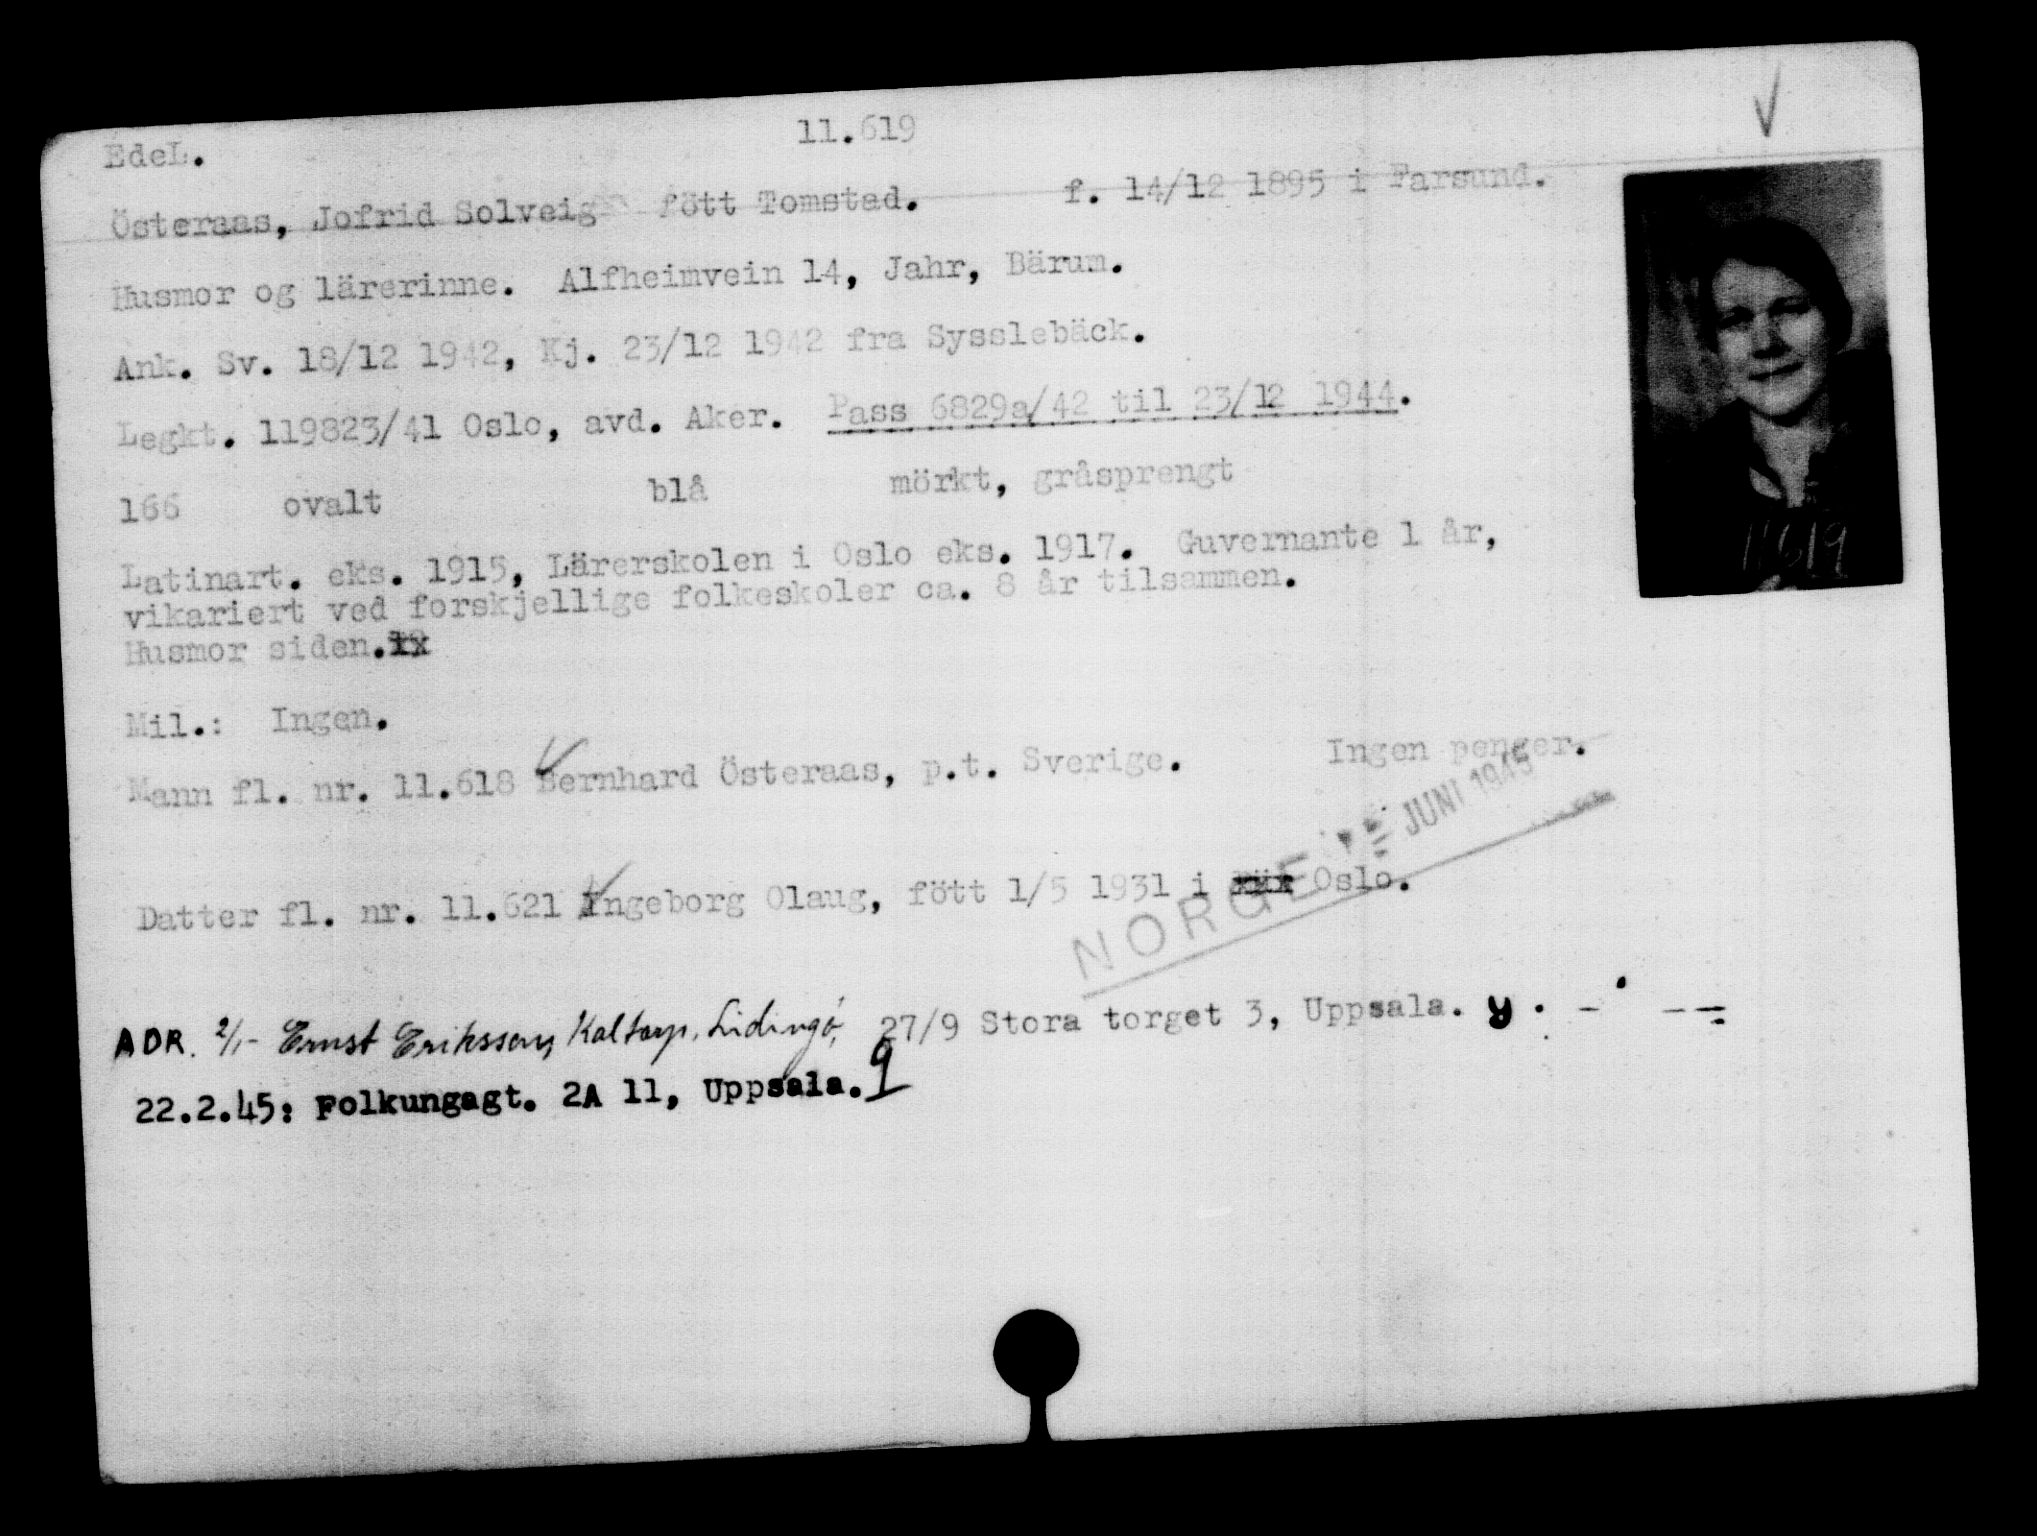 11.619
EdeL.
Österaas, Jofrid Solveig fött Tomstad. f. 14/12 1895 i Farsund.
Husmor og lärerinne. Alfheimvein 14, Jahr, Bärum.
Ank. Sv. 18/12 1942, Kj. 23/12 1942 fra Sysslebäck.
Legkt. 119823/41 Oslo, avd. Aker. Pass 6829a/42 til 23/12 1944.
166 ovalt blå mörkt, gråsprengt
11619
Latinart. eks. 1915, Lärerskolen i Oslo eks. 1917. Guvernante 1 år,
vikariert ved forskjellige folkeskoler ca. 8 år tilsammen.
Husmor siden.
Mil.: Ingen.
Mann fl. nr. 11.618 Bernhard Österaas, p.t. Sverige. Ingen penger.
JUNI 1945
NORGE
Datter fl. nr. 11.621 Ingeborg Olaug, fött 1/5 1931 i Oslo.
ADR. 2/1- Ernst Eriksson, Kaltorp, Lidingö, 27/9 Stora torget 3, Uppsala. y. - --
22.2.45: Folkungagt. 2A 11, Uppsala. 9